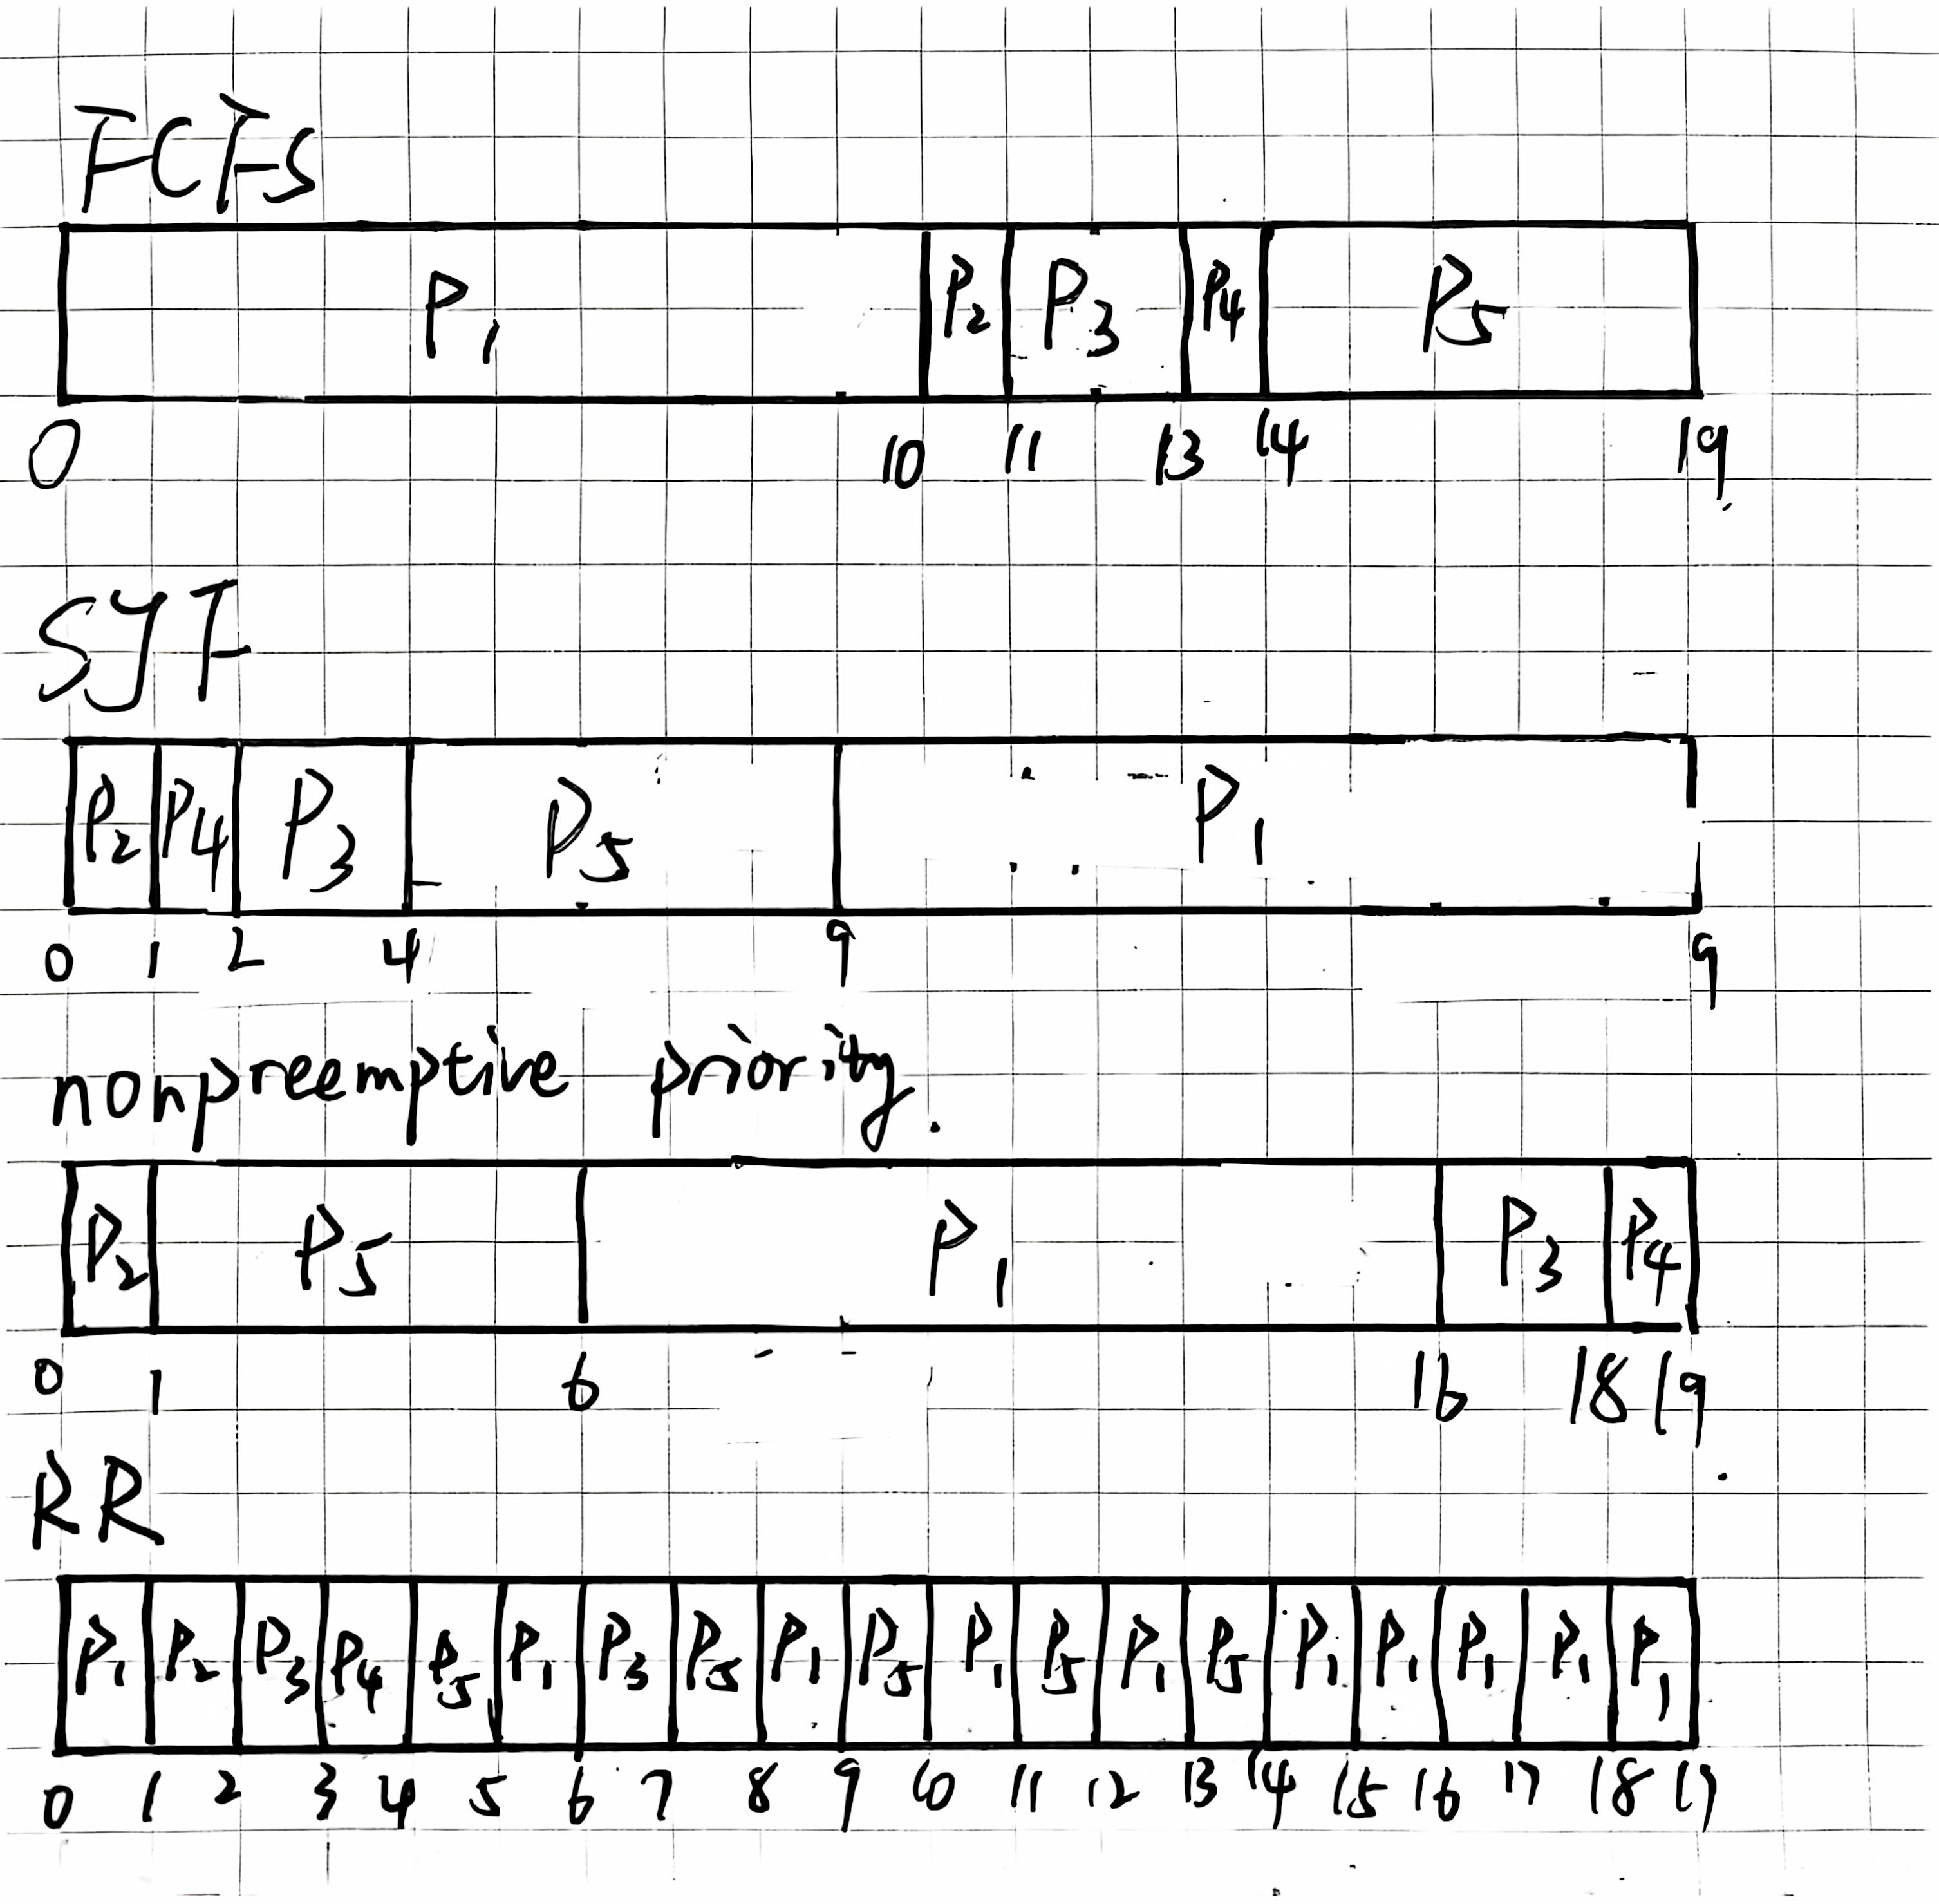 FCFS
P1 P2 P3 P4 P5
0 10 11 13 14 19
SJF
P2 P4 P3 P5 P1
0 1 2 4 9 9
nonpreemptive priority.
P2 P5 P1 P3 P4
0 1 6 16 18 19
RR
P1 P2 P3 P4 P5 P1 P3 P5 P1 P5 P1 P5 P1 P5 P1 P1 P1 P1 P1
0 1 2 3 4 5 6 7 8 9 10 11 12 13 14 15 16 17 18 19